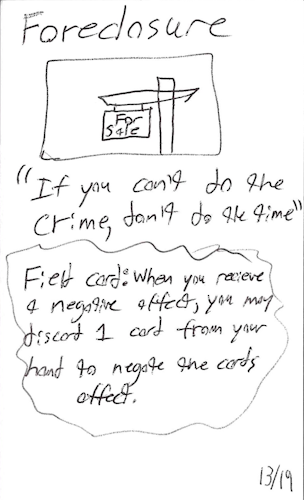 Foreclosure
For
Sale
"If you can't do the
crime, don't do the time"
Field card: When you recieve
a negative effect, you may
discard 1 card from your
hand to negate the cards
effect.
13/19